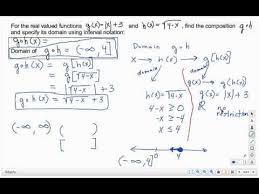 For the real valued functions g(x) = |x| + 3 and h(x) = √4-x, find the composition g∘h
and specify its domain using interval notation:
g∘h(x) =
Domain of g∘h = (-∞, 4]
g∘h(x) = g[h(x)]
h(x) = √4-x
g∘h(x) = √4-x + 3
(-∞, ∞) ( )
[ ]
Domain g∘h
x → h(x) → g[h(x)]
domain domain
h(x) = √4-x
4-x ≥ 0
-x ≥ -4
x ≤ 4
g(x) = |x| + 3
ℝ no
restriction
0 4
(-∞, 4]